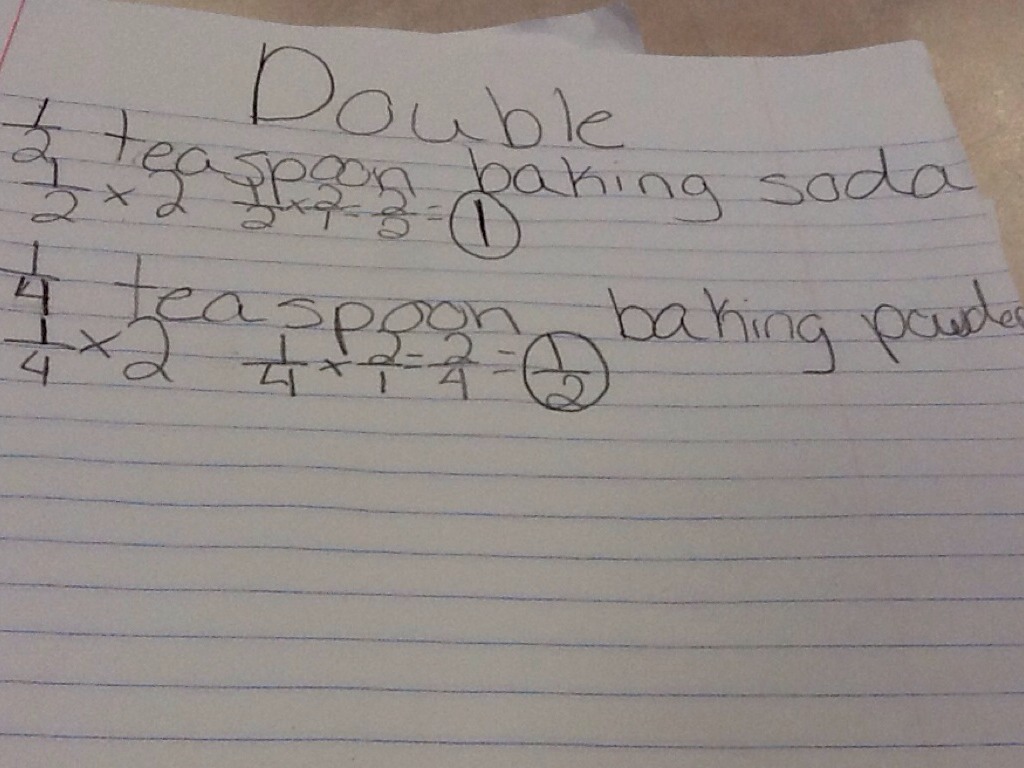 Double
1/2 teaspoon baking soda
1/2 × 2 1/2 × 2/1 = 2/2 = 1
1/4 teaspoon baking powder
1/4 × 2 1/4 × 2/1 = 2/4 = 1/2